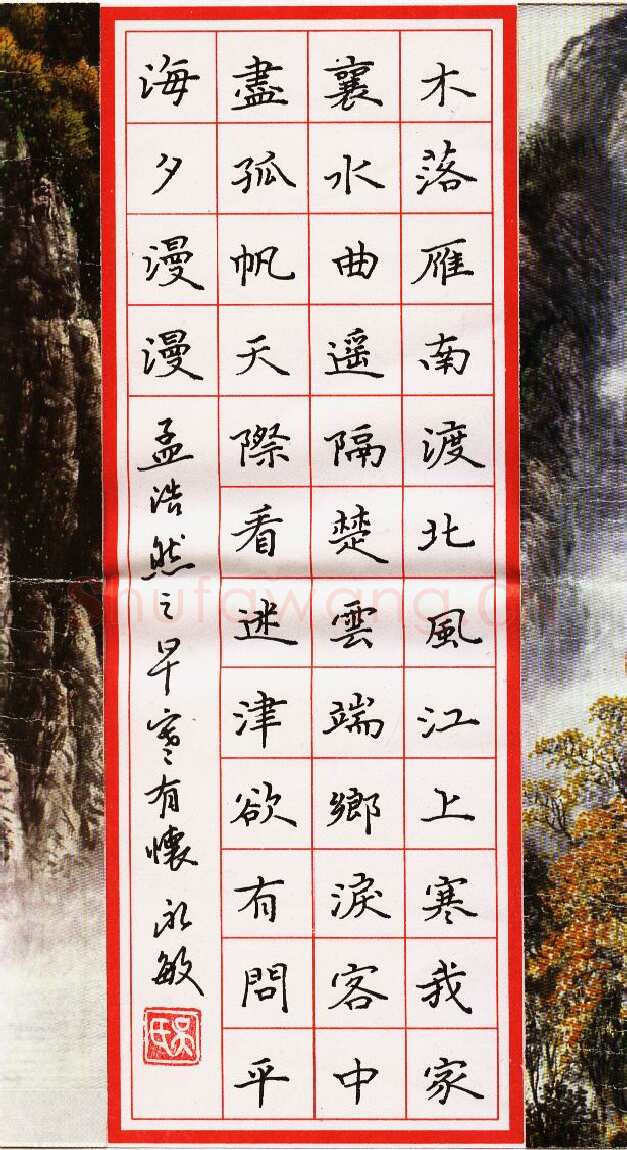 木落雁南渡北風江上寒我家
襄水曲遥隔楚雲端鄉淚客中
盡孤帆天際看迷津欲有問平
海夕漫漫
孟浩然之早寒有懷 永敏
吳氏